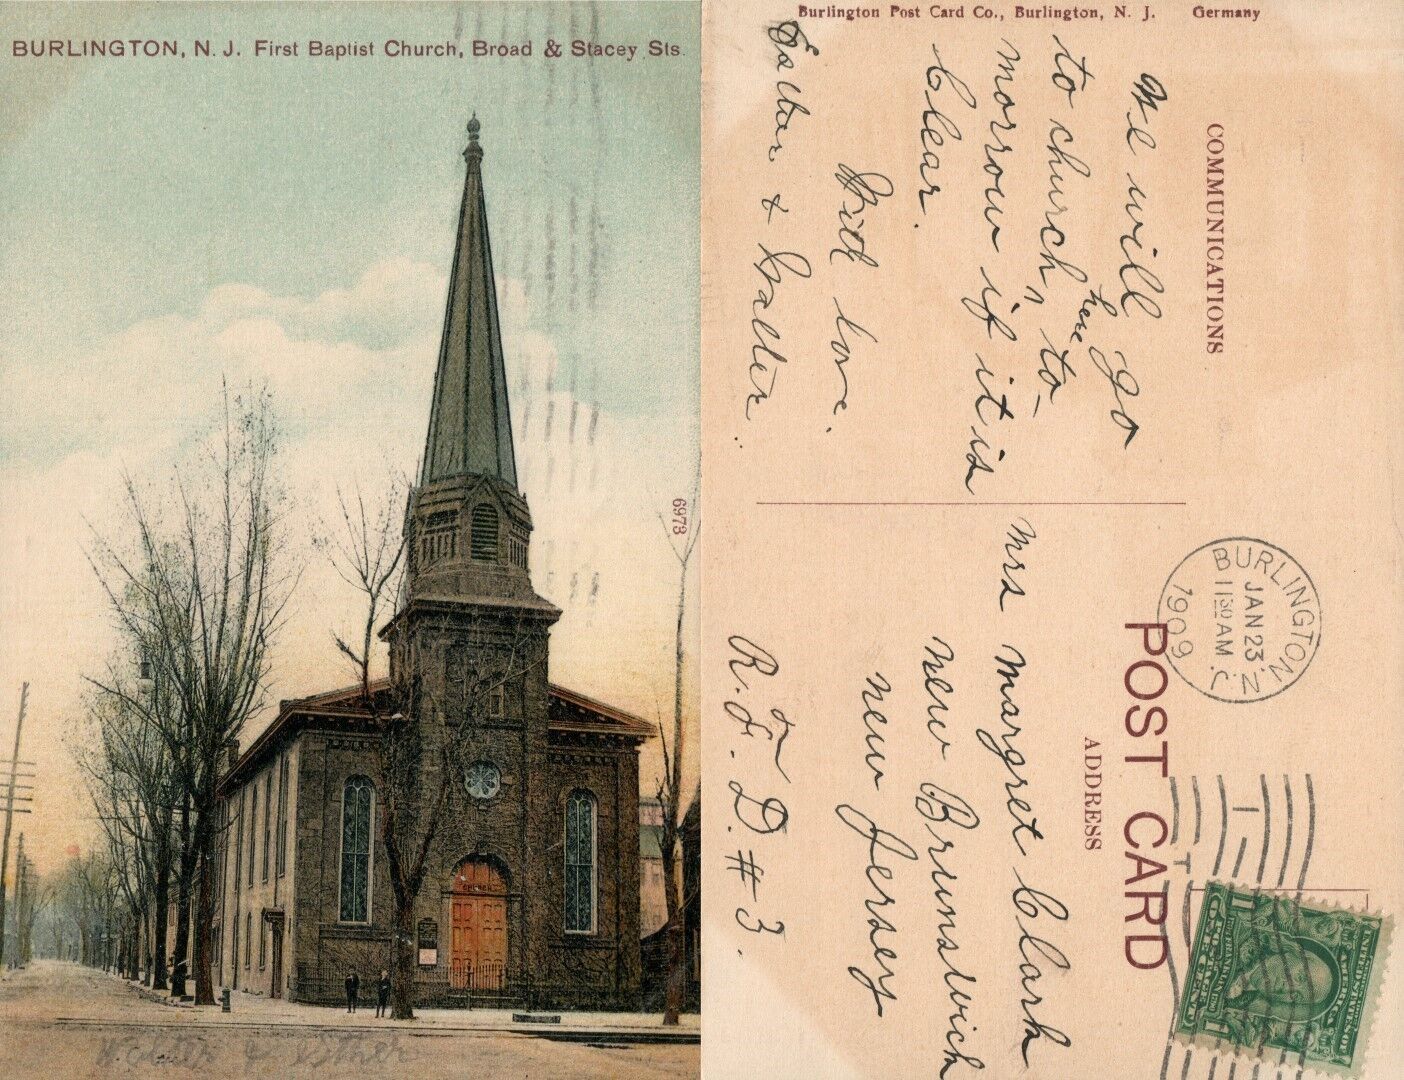 BURLINGTON, N. J. First Baptist Church, Broad & Stacey Sts.
CHURCH
6973
Walter & Esther
Burlington Post Card Co., Burlington, N. J. Germany
COMMUNICATIONS
We will go
to church, here to-
morrow if it is
Clear.
With love.
Esther & Walter.
BURLINGTON N.J.
JAN 23
11 30 AM
1909
POST CARD
ADDRESS
Mrs Margret Clark
New Brunswick
New Jersey
R. F. D. # 3.
1